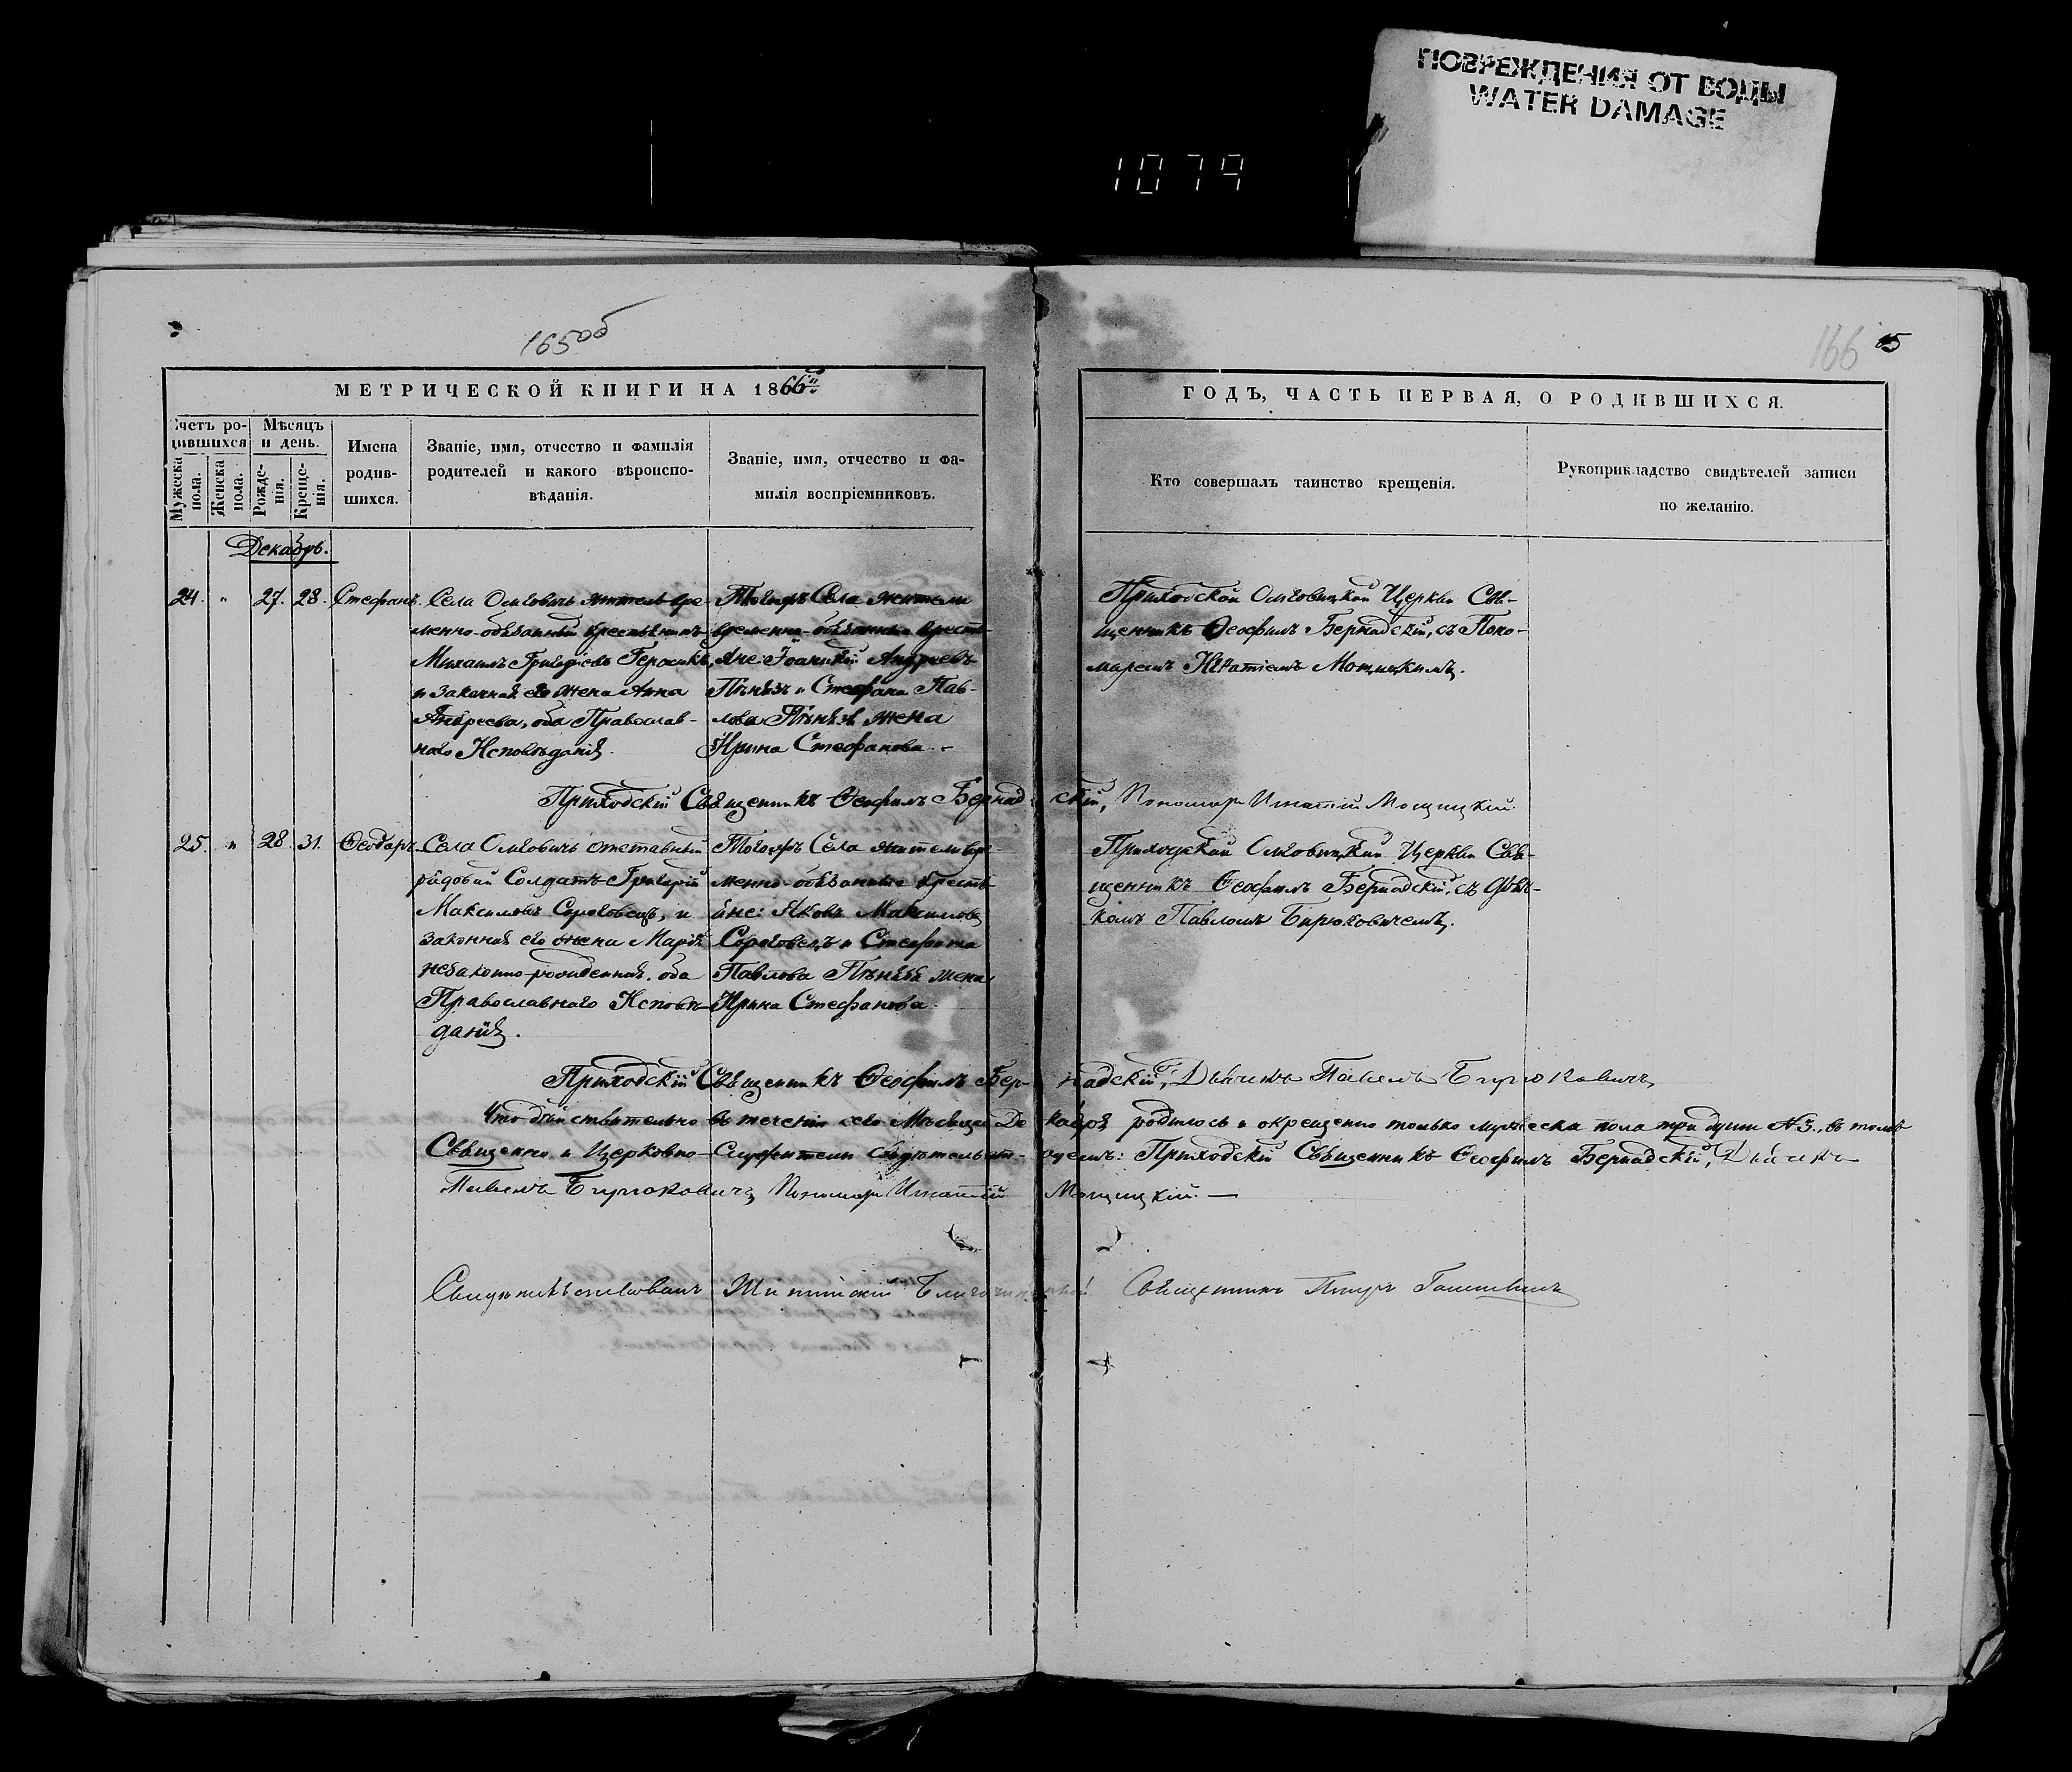 ПОВРЕЖДЕНИЯ ОТ ВОДЫ
WATER DAMAGE
1079
165об
166
15
МЕТРИЧЕСКОЙ КНИГИ НА 1866й
ГОДЪ, ЧАСТЬ ПЕРВАЯ, О РОДИВШИХСЯ.
Счетъ ро-
дившихся
Мужеска пола.
Женска пола.
Мѣсяцъ
и день.
Рожде-
нія.
Креще-
нія.
Имена
родив-
шихся.
Званіе, имя, отчество и фамилія
родителей и какого вѣроиспо-
вѣданія.
Званіе, имя, отчество и фа-
милія воспріемниковъ.
Кто совершалъ таинство крещенія.
Рукоприкладство свидѣтелей записи
по желанію.
Декабрь.
24. " 27. 28. Стефанъ.
Села житель вре-
менно-обязанный крестьянинъ
Михаилъ Григоріевъ
и законная его жена Анна
Андреева, оба Православ-
наго Исповѣданія.
Тогожъ Села жители
временно-обязанные кресть-
яне: Іоанникій Андреевъ
и Стефана Пав-
лова жена
Ирина Стефанова.
Приходской Церкви Свя-
щенникъ Ѳеофилъ Бернадскій, съ Поно-
маремъ Игнатіемъ Мощицкимъ.
Приходскій Священникъ Ѳеофилъ Бернадскій, Пономарь Игнатій Мощицкій.
25. " 28. 31. Ѳеодоръ
Села отставный
рядовый Солдатъ Григорій
Максимовъ Сороговецъ, и
законная его жена Марія
незаконно-рожденная, оба
Православнаго Исповѣ-
данія.
Тогожъ Села жители вре-
менно-обязанные кресть-
яне: Яковъ Максимовъ
Сороговецъ и Стефана
Павлова жена
Ирина Стефанова.
Приходской Церкви Свя-
щенникъ Ѳеофилъ Бернадскій, съ Дьяч-
комъ Павломъ Бирюковичемъ.
Приходскій Священникъ Ѳеофилъ Бернадскій, Дьячекъ Павелъ Бирюковичъ,
Что дѣйствительно въ теченіи сего Мѣсяца Декабря родилось и окрещено только мужеска пола три души №3., въ томъ
Священно и Церковно-Служители свидѣтельствуемъ: Приходскій Священникъ Ѳеофилъ Бернадскій, Дьячекъ
Павелъ Бирюковичъ, Пономарь Игнатій Мощицкій. —
Свидѣтельствовалъ Благочинный Священникъ Петръ